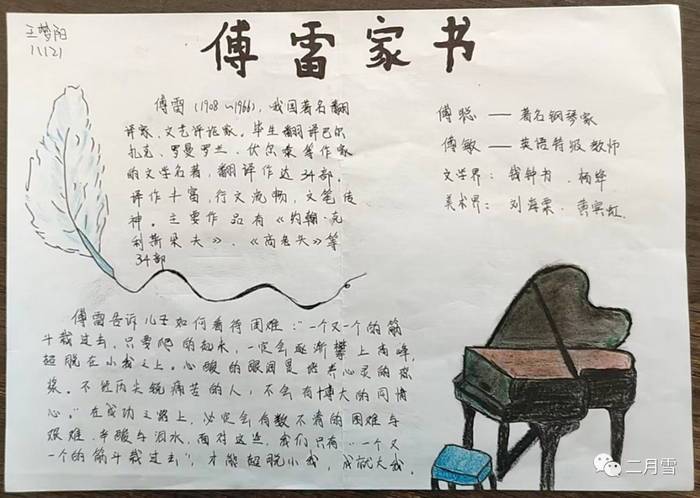 王梦阳
11121
傅雷家书
傅雷(1908~1966),我国著名翻
译家、文艺评论家。毕生翻译巴尔
扎克、罗曼罗兰、伏尔泰等作家
的文学名著,翻译作达34部。
译作丰富,行文流畅,文笔传
神。主要作品有《约翰·克
利斯朵夫》、《高老头》等
34部
傅聪——著名钢琴家
傅敏——英语特级教师
文学界:钱钟书、杨绛
美术界:刘海粟、黄宾虹
傅雷告诉儿子如何看待困难:“一个又一个的筋
斗栽过去,只要爬的起来,一定会逐渐攀上高峰,
超脱在小我之上。心酸的眼泪是培养心灵的酒
浆。不经历尖锐痛苦的人,不会有博大的同情
心。”在成功之路上,必定会有数不清的困难与
艰难、辛酸与泪水,面对这些,我们只有“一个又
一个的筋斗栽过去”,才能超脱小我,成就大我。
二月雪